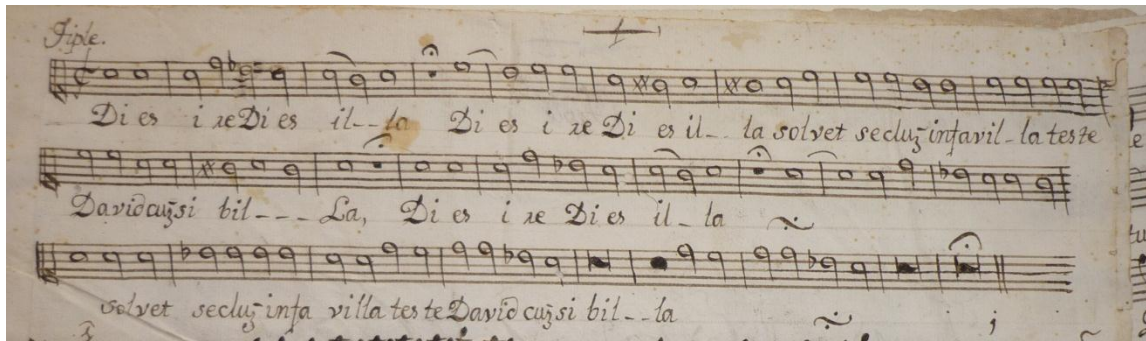 Tiple.
Di es i re Di es il-- la Di es i re Di es il-- la solvet secluz infavil-la teste
David cuz si bil--- La, Di es i re Di es il-- la
solvet secluz infa villa tes te David cuz si bil-- la